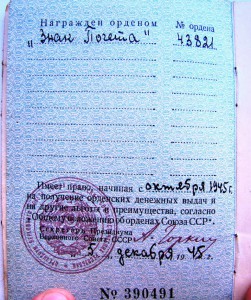 Награжден орденом № ордена
„Знак Почета" 43821
Имеет право, начиная с октября 1945 г.
на получение орденских денежных выдач и
на другие льготы и преимущества, согласно
„Общему положению об орденах Союза ССР".
Секретарь Президиума
Верховного Совета СССР
5 декабря 1945 г.
№ 390491